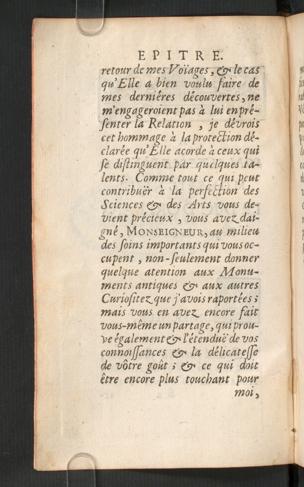 EPITRE.
retour de mes Voïages, & le cas
qu'Elle a bien voulu faire de
mes derniéres découvertes, ne
m'engageroient pas à lui en pré-
senter la Relation, je dévrois
cet hommage à la protection dé-
clarée qu'Elle acorde à ceux qui
se distinguent par quelques ta-
lents. Comme tout ce qui peut
contribuër à la perfection des
Sciences & des Arts vous de-
vient précieux, vous avez dai-
gné, MONSEIGNEUR, au milieu
des soins importants qui vous oc-
cupent, non-seulement donner
quelque atention aux Monu-
ments antiques & aux autres
Curiositez que j'avois raportées ;
mais vous en avez encore fait
vous-même un partage, qui prou-
ve également & l'étenduë de vos
connoissances & la délicatesse
de vôtre goût ; & ce qui doit
être encore plus touchant pour
moi,